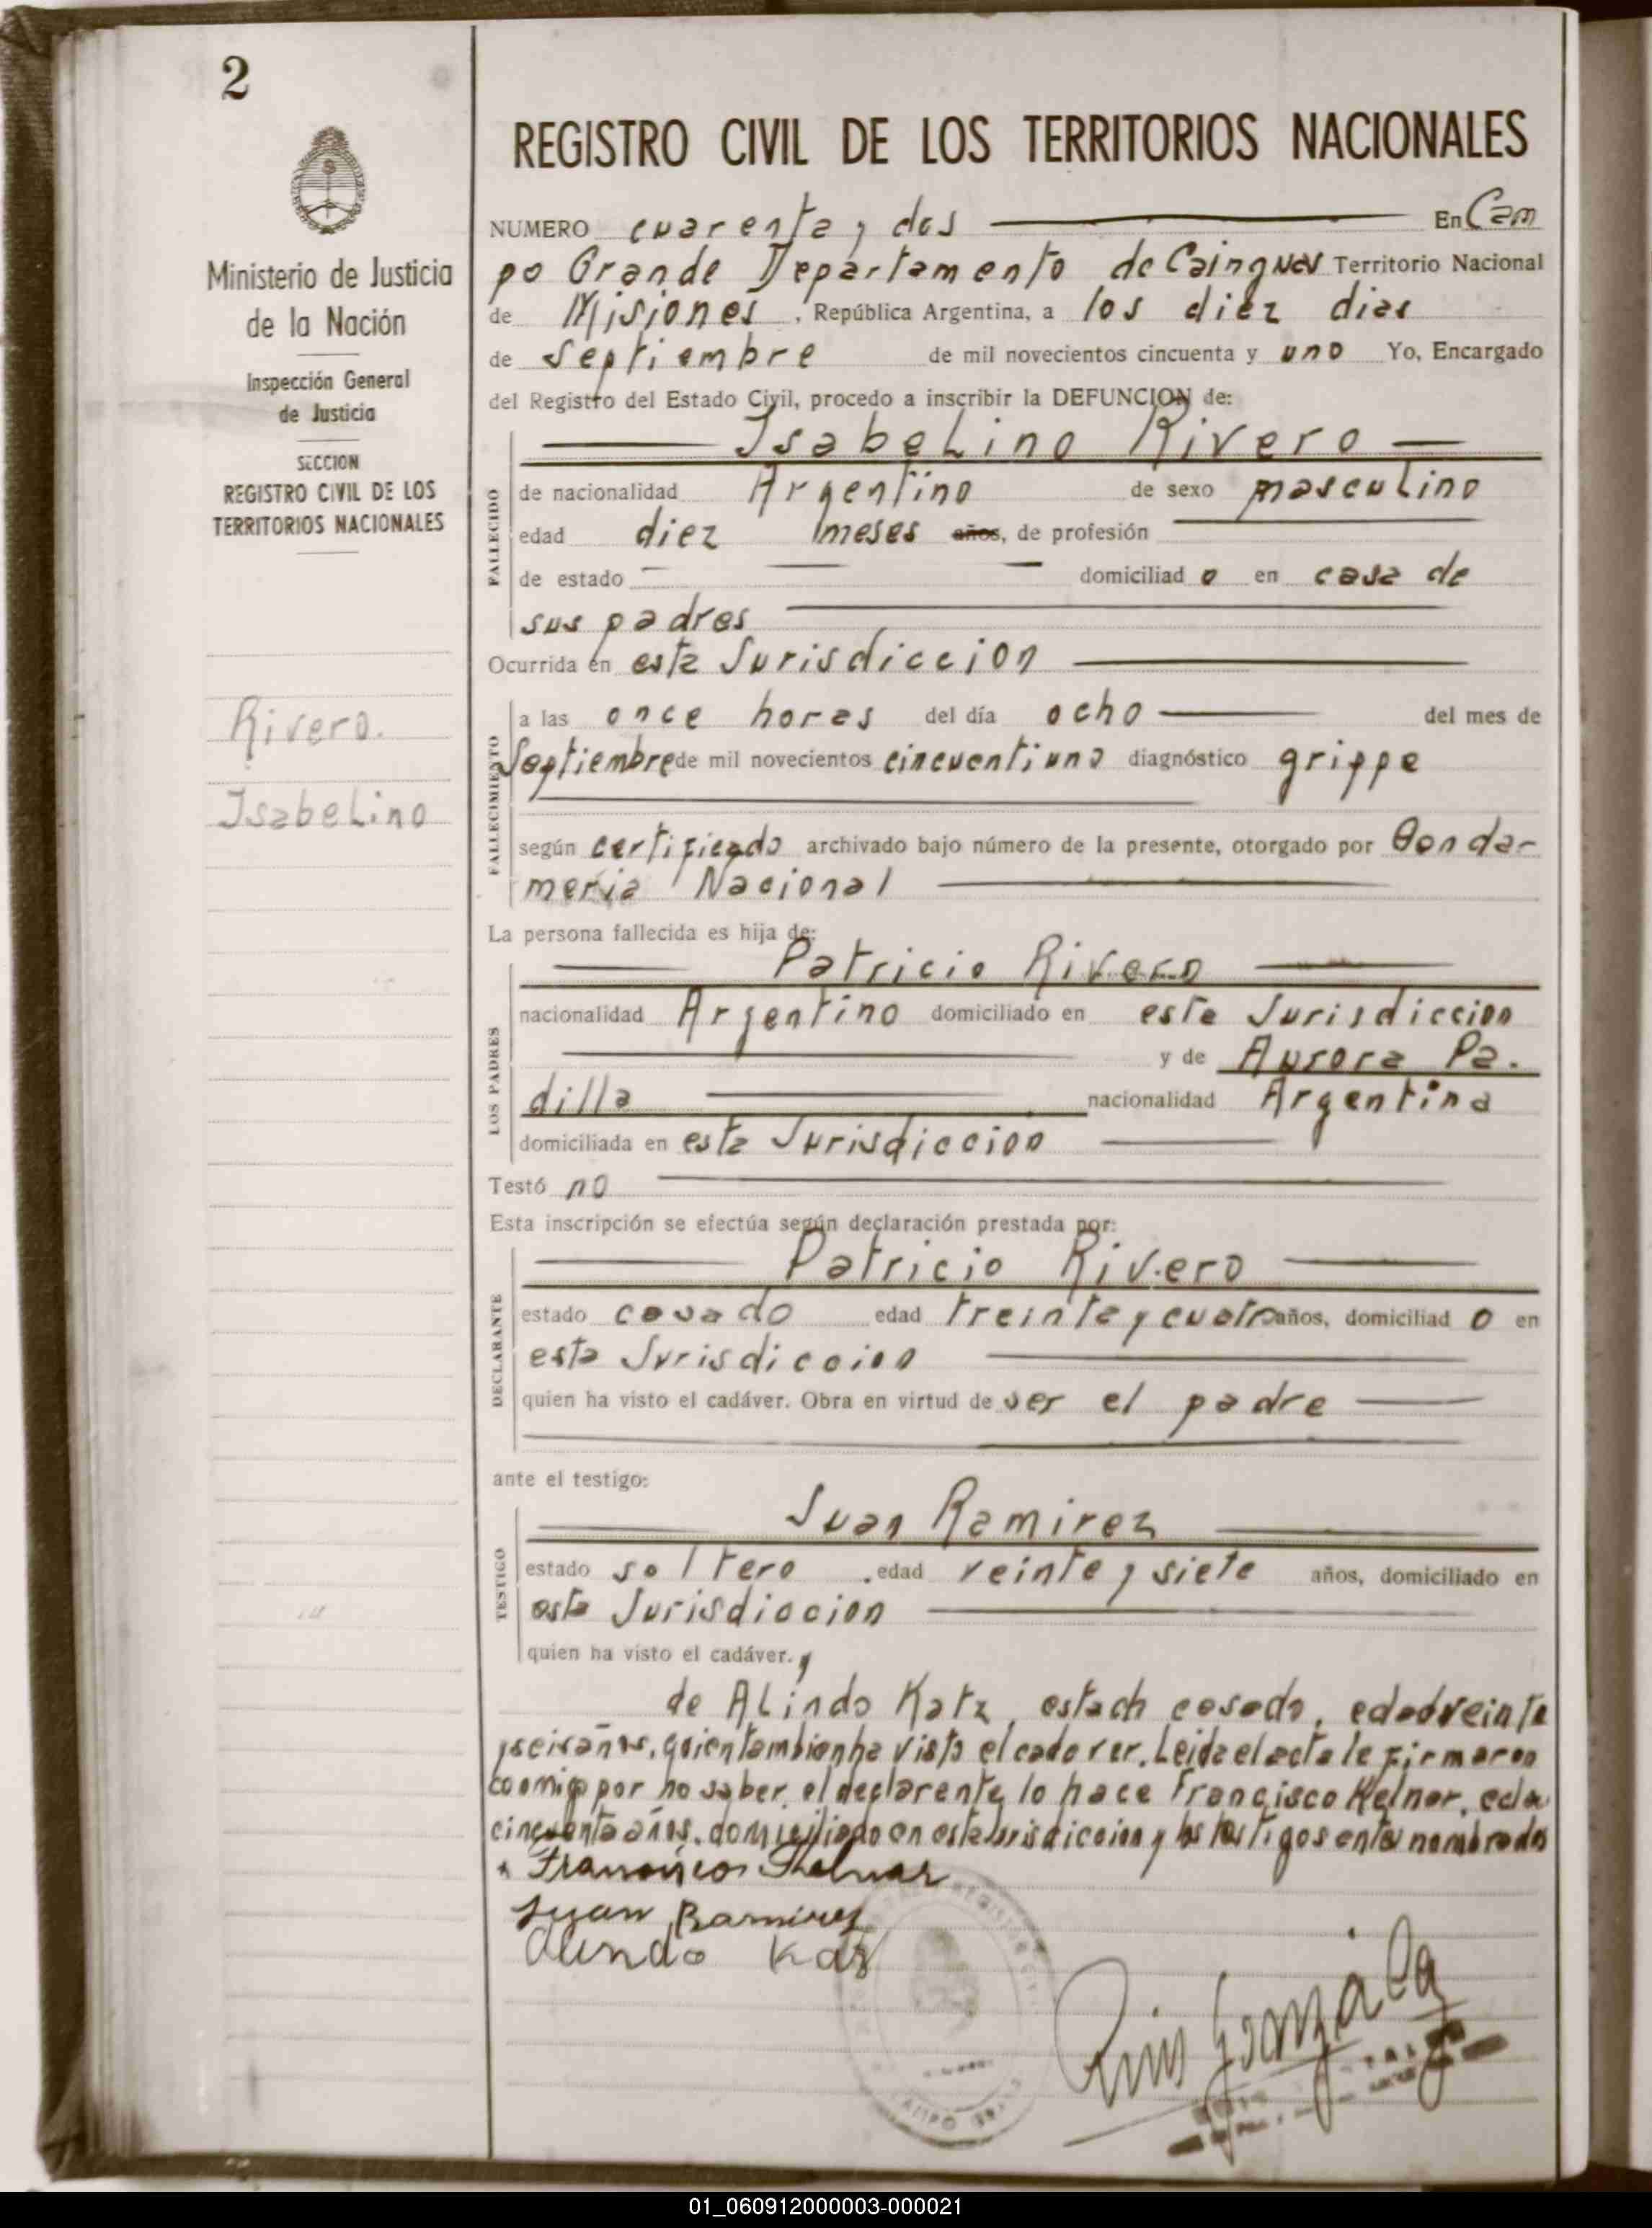 2
Ministerio de Justicia
de la Nación
Inspección General
de Justicia
SECCION
REGISTRO CIVIL DE LOS
TERRITORIOS NACIONALES
Rivero.
Isabelino
REGISTRO CIVIL DE LOS TERRITORIOS NACIONALES
NUMERO cuarenta y dos En Cam
po Grande Departamento de Cainguas Territorio Nacional
de Misiones, República Argentina, a los diez dias
de Septiembre de mil novecientos cincuenta y uno Yo, Encargado
del Registro del Estado Civil, procedo a inscribir la DEFUNCION de:
Isabelino Rivero
FALLECIDO
de nacionalidad Argentino de sexo masculino
edad diez meses años, de profesión
de estado domiciliad o en casa de
sus padres
Ocurrida en esta Jurisdiccion
FALLECIMIENTO
a las once horas del día ocho del mes de
Septiembre de mil novecientos cincuentiuno diagnóstico grippe
según certificado archivado bajo número de la presente, otorgado por Gendar-
meria Nacional
La persona fallecida es hija de:
Patricio Rivero
LOS PADRES
nacionalidad Argentino domiciliado en esta Jurisdiccion
y de Aurora Pa.
dilla nacionalidad Argentina
domiciliada en esta Jurisdiccion
Testó no
Esta inscripción se efectúa según declaración prestada por:
Patricio Rivero
DECLARANTE
estado casado edad treinta y cuatro años, domiciliad o en
esta Jurisdiccion
quien ha visto el cadáver. Obra en virtud de ser el padre
ante el testigo:
Juan Ramirez
TESTIGO
estado soltero edad veinte y siete años, domiciliado en
esta Jurisdiccion
quien ha visto el cadáver. y
de Alindo Katz, casado, edad veinte
y seis años, quien tambien ha visto el cadaver. Leida el acta le firmaron
conmigo por no saber el declarante lo hace Francisco Kelner, edad
cincuenta años, domiciliado en esta Jurisdiccion y los testigos antes nombrados
Francisco
Juan Ramirez
Alindo Katz
CAMPO GRANDE
González
01_060912000003-000021